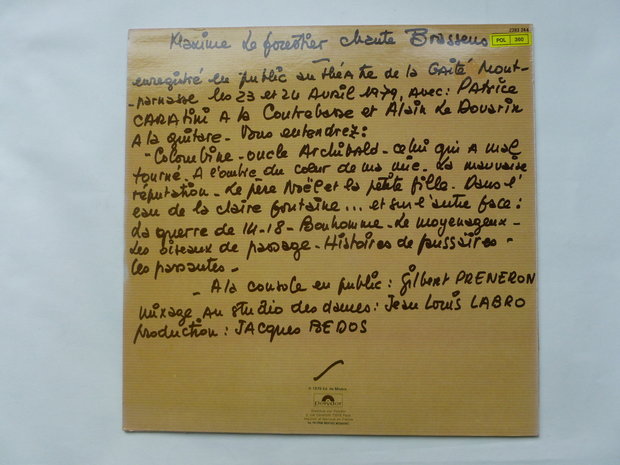 2393 244
POL 360
Maxime Le forestier chante Brassens
enregistré en public au théâtre de la Gaité Mont-
-parnasse les 23 et 24 Avril 1979, avec: PATRICE
CARATINI A la Contrebasse et Alain Le Douarin
A la guitare - Vous entendrez:
- Colombine - oncle Archibald - celui qui a mal
tourné - A l'ombre du cœur de ma mie - La mauvaise
réputation - Le père Noël et la petite fille - Dans l'
eau de la claire fontaine... et sur l'autre face:
La guerre de 14-18 - Bonhomme - Le moyenageux -
Les oiseaux de passage - Histoires de faussaires -
les passantes -
- A la console en public: Gilbert PRENERON
mixage au studio des dames: Jean Louis LABRO
production: JACQUES BEDOS
polydor